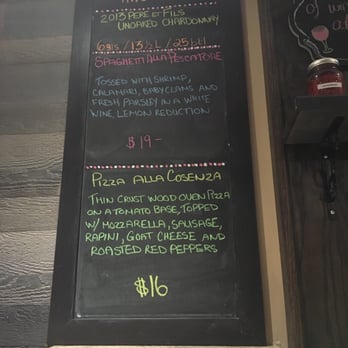 2013 PERE ET FILS
UNOAKED CHARDONNAY
6gls / 13 ½L / 25 btl
SPAGHETTI ALLA PESCATORE
TOSSED WITH SHRIMP,
CALAMARI, BABY CLAMS AND
FRESH PARSLEY IN A WHITE
WINE, LEMON REDUCTION
$19-
PIZZA ALLA COSENZA
THIN CRUST WOOD OVEN PIZZA
ON A TOMATO BASE, TOPPED
W/ MOZZARELLA, SAUSAGE,
RAPINI, GOAT CHEESE AND
ROASTED RED PEPPERS
$16